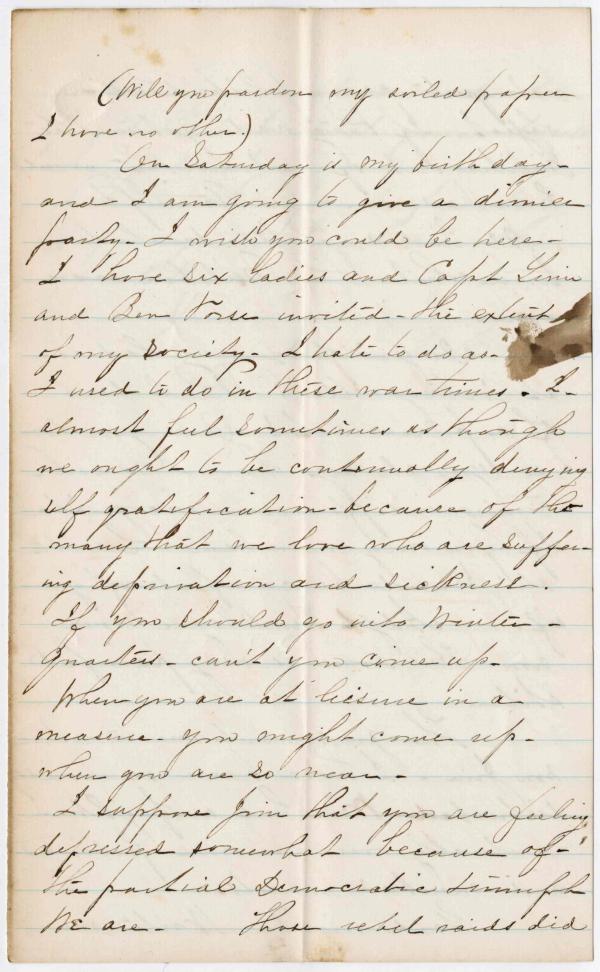 (Will you pardon my soiled paper
I have no other.)
On Saturday is my birth day-
and I am going to give a dinner
party- I wish you could be here-
I have six ladies and Capt Linn
and Ben invited- the extent
of my society- I hate to do as-
I used to do in these war times. I-
almost feel sometimes as though
we ought to be continually denying
self gratification- because of the
many that we love who are suffer-
ing deprivation and sickness.
If you should go into Winter-
quarters- can't you come up-
When you are at leisure in a
measure- you might come up-
when you are so near-
I suppose Jim that you are feeling
depressed somewhat because of-
the partial Democratic triumph
We are- Those rebel raids did